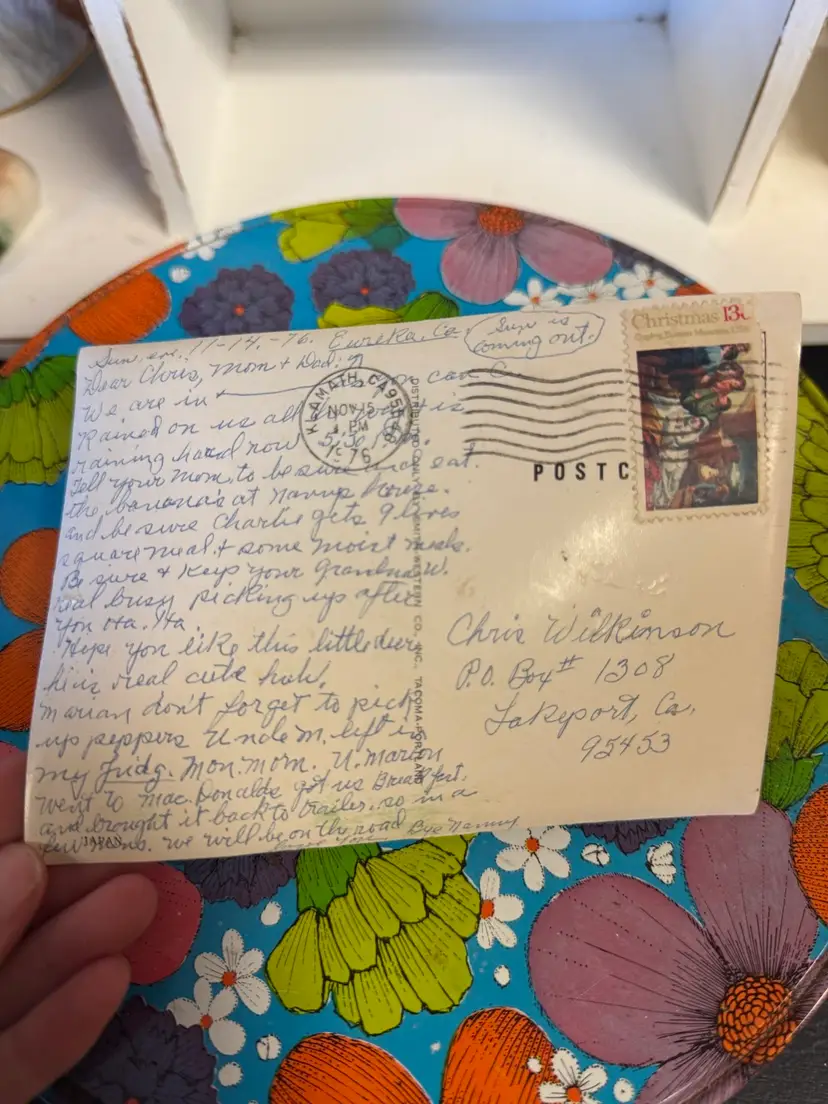 Sun. eve. 11-14,-76. Eureka, Ca.
Sun is
coming out.
Dear Chris, Mom + Dad:
We are in can
Rained on us all it is
raining hard now 5:30 P.M.
Tell your Mom, to be sure eat
the, banana's at Nanny's house.
and be sure Charlie gets 9 lives
square meal, + some moist meals.
Be sure + Keep your Grandma W.
real busy picking up after
you Ha. Ha.
Hope you like this little deer
he is real cute huh!
Marian don't forget to pick
up peppers Uncle M. left in
my fridg. Mon. Morn. U. Marion
went to Mac.Donalds got us Breakfast.
and brought it back to trailer. so in a
few we will be on the road Bye Nanny
JAPAN
KLAMATH, CA 955
NOV 15
PM
1976
DISTRIBUTED ONLY BY SMITH-WESTERN CO., INC. TACOMA-PORTLAND
Christmas 13c
POSTC
Chris Wilkinson
P.O. Box # 1308
Lakeport, Ca.
95453